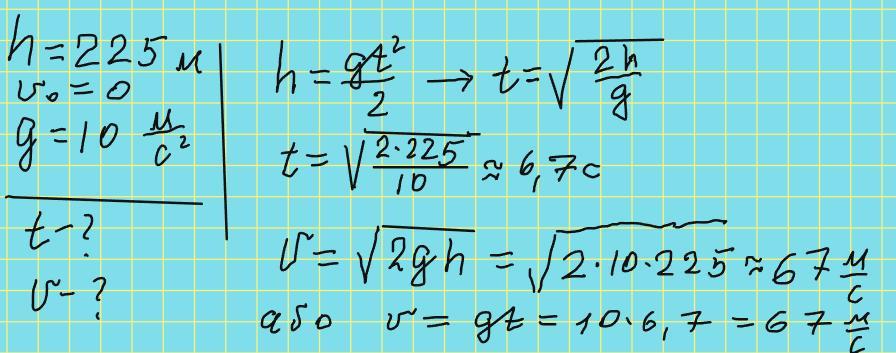 h = 225 м
v₀ = 0
g = 10 м/с²
t - ?
v - ?
h = gt²/2 → t = √(2h/g)
t = √(2·225/10) ≈ 6,7 с
v = √(2gh) = √(2·10·225) ≈ 67 м/с
або v = gt = 10·6,7 = 67 м/с